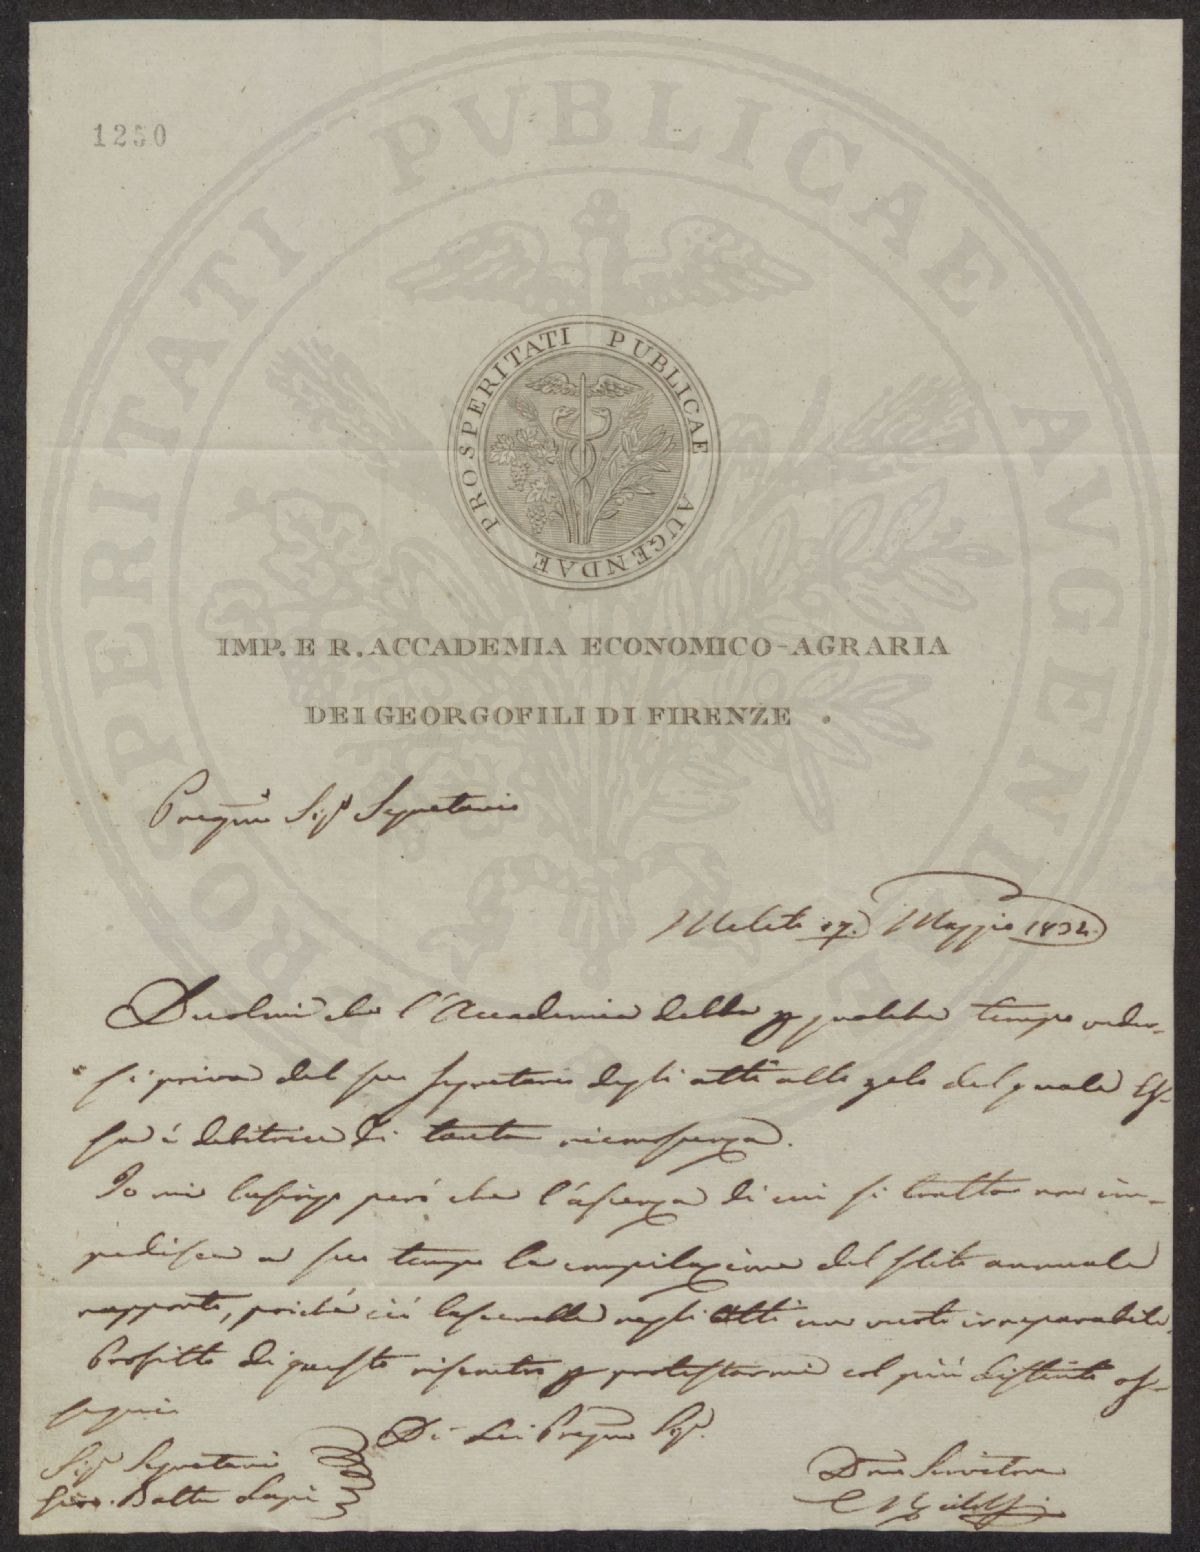 1250
PROSPERITATI PUBLICAE AUGENDAE
PROSPERITATI PVBLICAE AVGENDAE
IMP. E R. ACCADEMIA ECONOMICO-AGRARIA
DEI GEORGOFILI DI FIRENZE.
Pregmo Sigr Segretario
Meleto 17. Maggio 1834.
Duolmi che l'Accademia debba p qualche tempo veder-
si priva del suo Segretario degli atti allo zelo del quale Es-
sa è debitrice di tanta riconoscenza.
Io mi lusingo però che l'assenza di cui si tratta non im-
pedisca a suo tempo la compilazione del solito annuale
rapporto, poichè ciò lascerebbe negli Atti un vuoto irreparabile.
Profitto di questo riscontro p protestarmi col più distinto os-
sequio
Di Lei Pregmo Sigr.
Sigr Segretario
Gio. Batta Lapi
Devmo Servitore
C Ridolfi